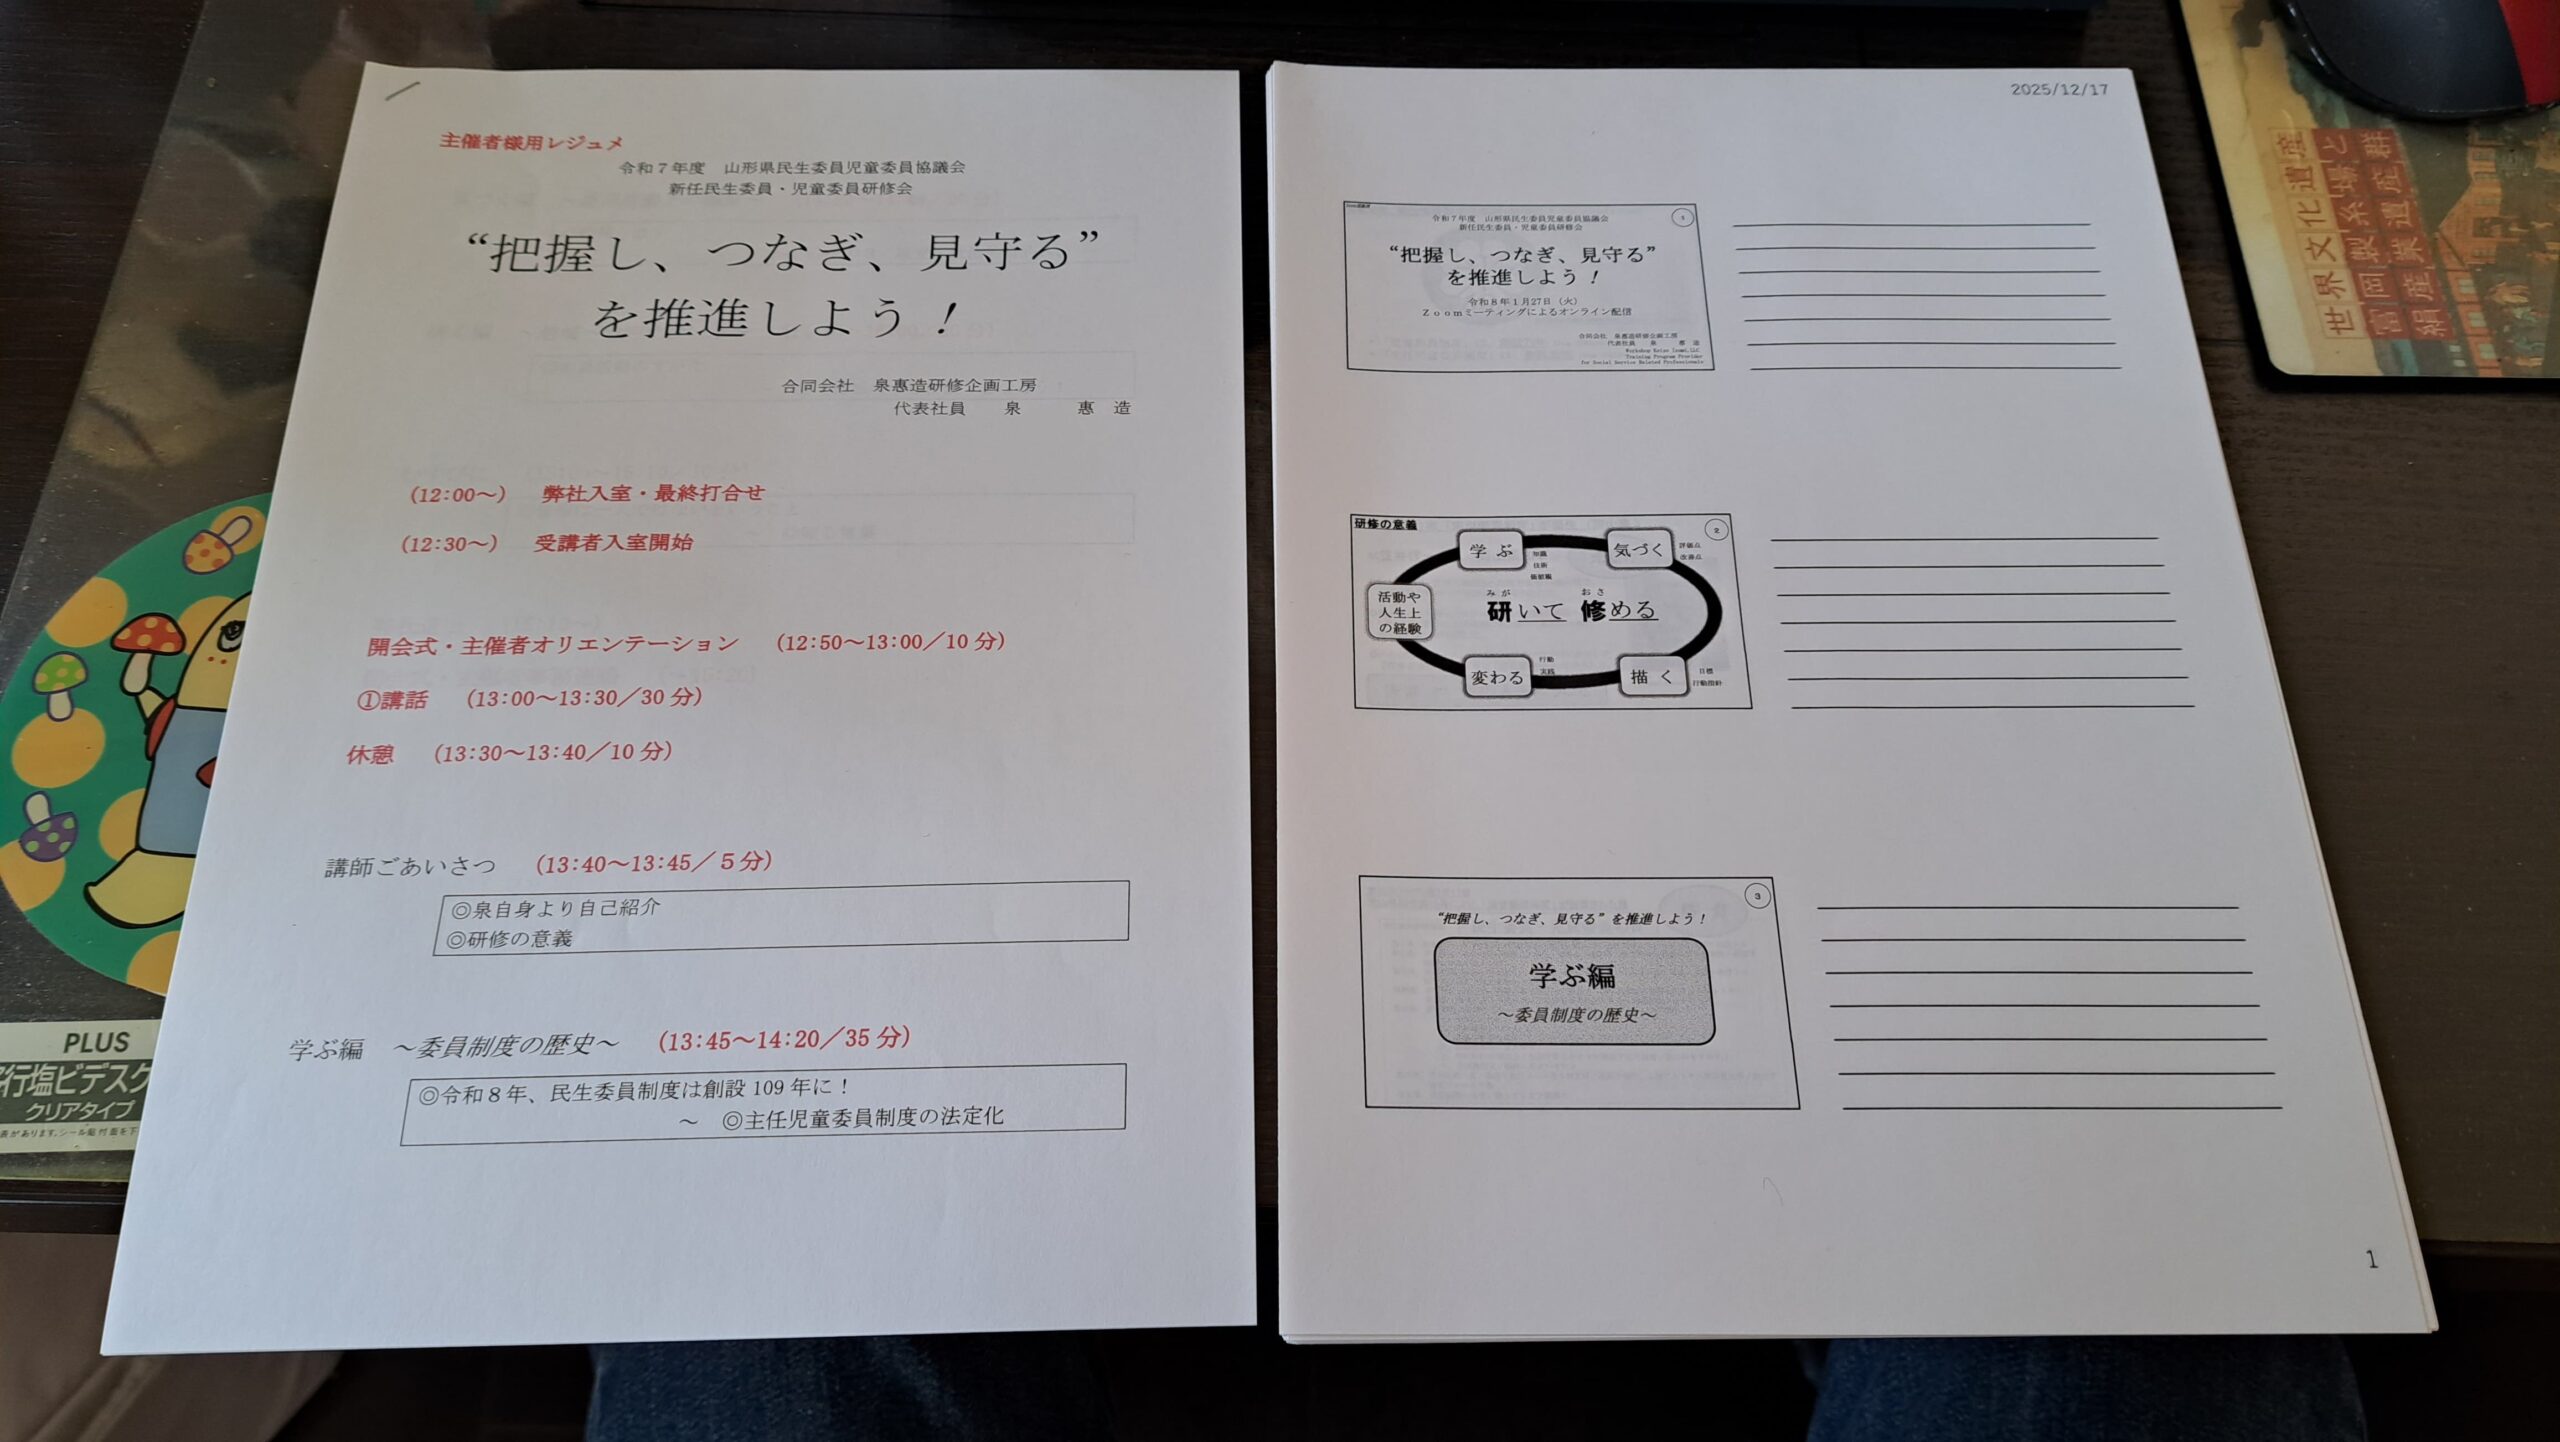 主催者様用レジュメ
令和７年度　山形県民生委員児童委員協議会
新任民生委員・児童委員研修会
“把握し、つなぎ、見守る”
を推進しよう！
合同会社　泉惠造研修企画工房
代表社員　泉　惠　造
(12:00～)　弊社入室・最終打合せ
(12:30～)　受講者入室開始
開会式・主催者オリエンテーション　(12:50～13:00／10分)
①講話　(13:00～13:30／30分)
休憩　(13:30～13:40／10分)
講師ごあいさつ　(13:40～13:45／５分)
◎泉自身より自己紹介
◎研修の意義
学ぶ編　～委員制度の歴史～　(13:45～14:20／35分)
◎令和８年、民生委員制度は創設109年に！
～　◎主任児童委員制度の法定化
2025/12/17
1
令和７年度　山形県民生委員児童委員協議会
新任民生委員・児童委員研修会
“把握し、つなぎ、見守る”
を推進しよう！
令和８年１月27日（火）
Ｚｏｏｍミーティングによるオンライン配信
合同会社　泉惠造研修企画工房
代表社員　泉　惠　造
Workshop Keizo Izumi,LLC
Training Program Provider
for Social Service Related Professionals
研修の意義
2
学ぶ
知識
技術
価値観
気づく
評価点
改善点
活動や
人生上
の経験
みが　おさ
研いて　修める
変わる
行動
実践
描く
目標
行動指針
3
“把握し、つなぎ、見守る”を推進しよう！
学ぶ編
～委員制度の歴史～
1
PLUS
クリアタイプ
世界文化遺産
富岡製糸場と
絹産業遺産群